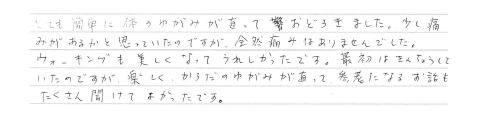 とても簡単に体のゆがみが直って驚おどろきました。少し痛
みがあるかと思っていたのですが、全然痛みはありませんでした。
ウォーキングも美しくなってうれしかったです。最初はきんちょうして
いたのですが、楽しく、からだのゆがみが直って、参考になるお話も
たくさん聞けてよかったです。